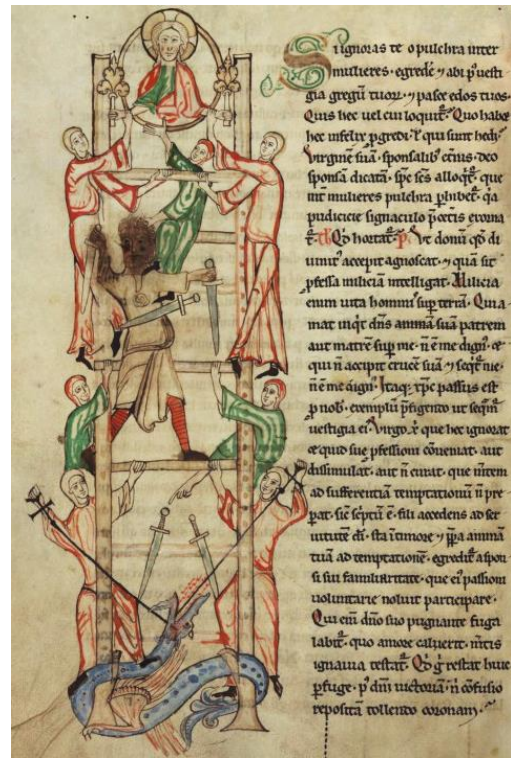 Si ignoras te o pulchra inter
mulieres. egredē ⁊ abi p᾽ uesti
gia gregū tuoꝝ. ⁊ pasce edos tuos.
Quis hec uel cui loquit᷑. Quo habet
hec infelix ꝓgredi. ł qui sunt hedi.
Virginē suā sponsalib᾽ deo
sponsā dicatā. sp̄c sc̄s alloq̄t᷑. que
int̄ mulieres pulchra ꝑhibet᷑. q̄a
pudicicie signaculo p̄ cet̄is exorna
t᷑. Qd̄ hortat᷑. Vt donū qd̄ di
uinit᾽ accepit agnoscat. ⁊ quā sit
ꝓfessa miliciā intelligat. Milicia
enim uita homini᾽ sup̄ terrā. Qui a
mat inq̄t dn̄s animā suā patrem
aut matrē sup̄ me. n̄ ē me dign᾽. et
qui n̄ accipit crucē suā ⁊ seq̄t᷑ me.
n̄ ē me dign᾽. Itaq; xp̄c passus est
ꝓ nob᾽. exemplū p̄figendo ut seq̄m᷑
uestigia ei᾽. Virgo ḡ que hec ignorat
et quid sue ꝓfessioni cōueniat. aut
dissimulat. aut n̄ curat. que m̄tem
ad sufferentiā temptationū n̄ p̄
parat. sic sc̄ptū ē. fili accedens ad ser
uitutē dī. sta ī timore ⁊ p̄ꝑa animā
tuā ad temptationē. egredit᷑ a spon
si sui familiaritate. que ei᾽ passioni
uoluntarie noluit participare.
Qui enī dn̄o suo pugnante fuga
labit᷑. quo amore caluerit. m̄tis
ignauia testat᷑. Qd̄ ḡ restat huic
ꝑfuge. p᾽ dn̄i uictoriā. n̄ cōfusio
repositā tollendo coronam.